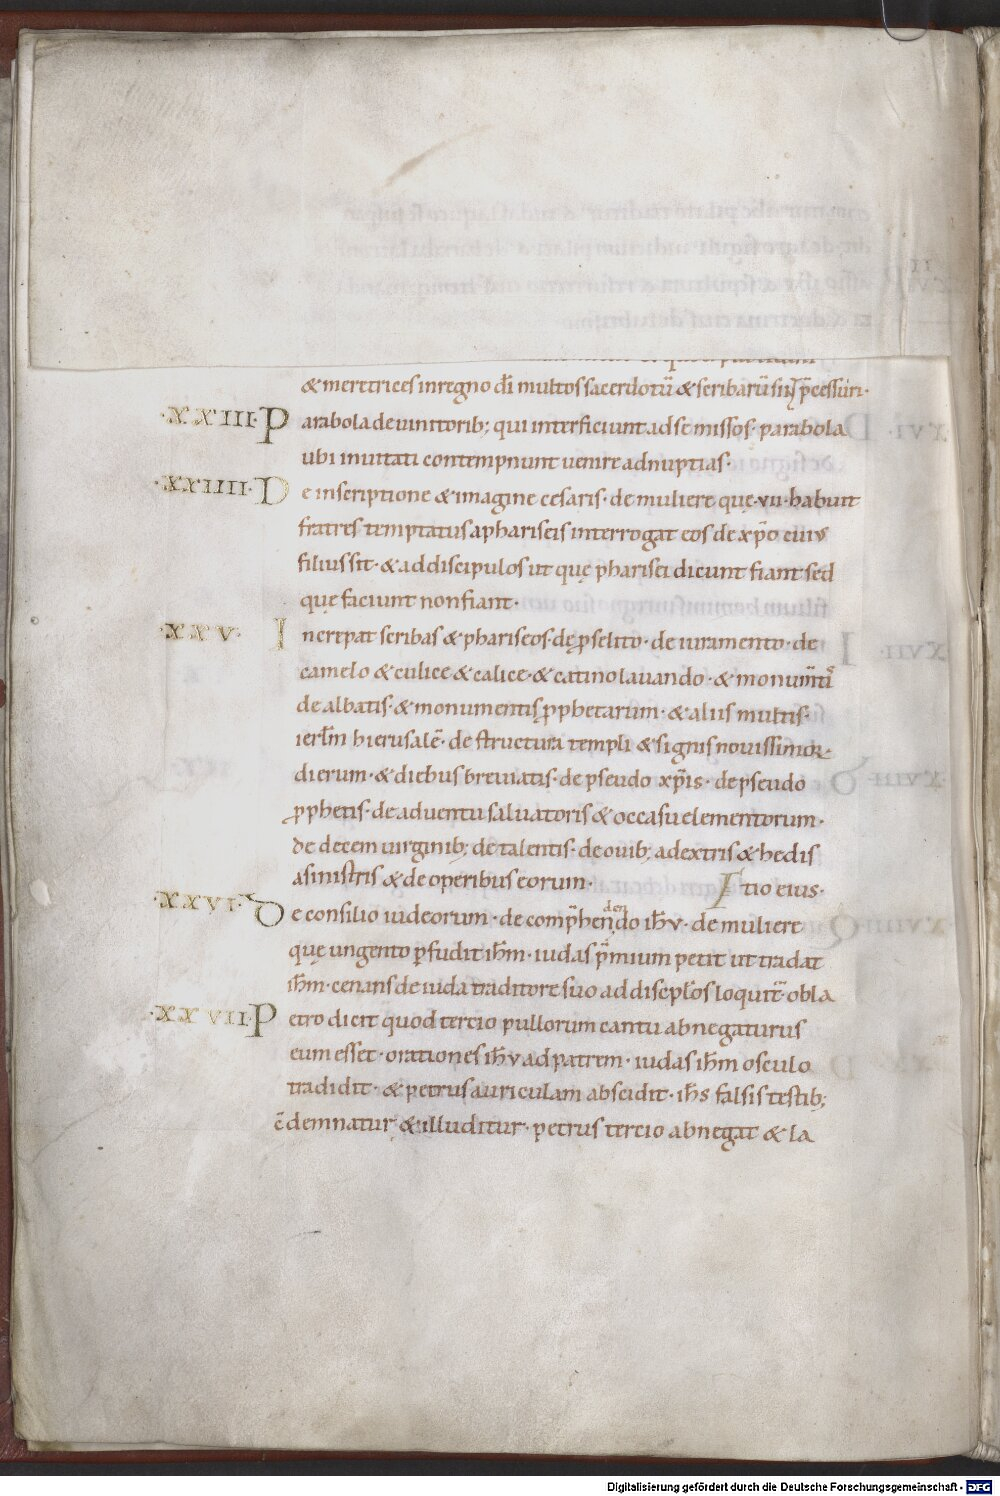 & meretrices in regno dī multos sacerdotū & scribarū sin p̄cessuri·
·XXIII· Parabola de uinitorib; qui interficiunt ad se missos· parabola
ubi inuitati contempnunt uenire ad nuptias·
·XXIIII· De inscriptione & imagine cesaris· de muliere quę ·vii· habuit
fratres temptatus a phariseis interrogat eos de xp̄o cuius
filius sit· & ad discipulos ut quę pharisei dicunt fiant sed
quę faciunt non fiant·
·XXV· Increpat scribas & phariseos· de ꝓselito· de iuramento· de
camelo & culice & calice· & catino lauando· & monum̄tī
de albatis· & monumentis ꝓphetarum· & aliis multis·
ierlm̄ hierusalē· de structura templi & signis nouissimoꝝ·
dierum· & diebus breuiatis· de pseudo xp̄is· de pseudo
ꝓphetis· de aduentu saluatoris & occasu elementorum·
de decem uirginib; de talentis· de ouib; a dextris & hedis
a sinistris & de operibus eorum· Ftio eius·
·XXVI· De consilio iudeorum· de comp̄hendendo ih̄v· de muliere
quę ungento ꝑfudit ih̄m· iudas p̄mium petit ut tradat
ih̄m· cenans de iuda traditore suo ad discipl̄os loquit̄· obla
·XXVII· Petro dicit quod tercio pullorum cantu abnegaturus
eum esset· orationes ih̄v ad patrem· iudas ih̄m osculo
tradidit· & petrus auriculam abscidit· ih̄s falsis testib;
c̄demnatur & illuditur· petrus tercio abnegat & la
Digitalisierung gefördert durch die Deutsche Forschungsgemeinschaft - DFG